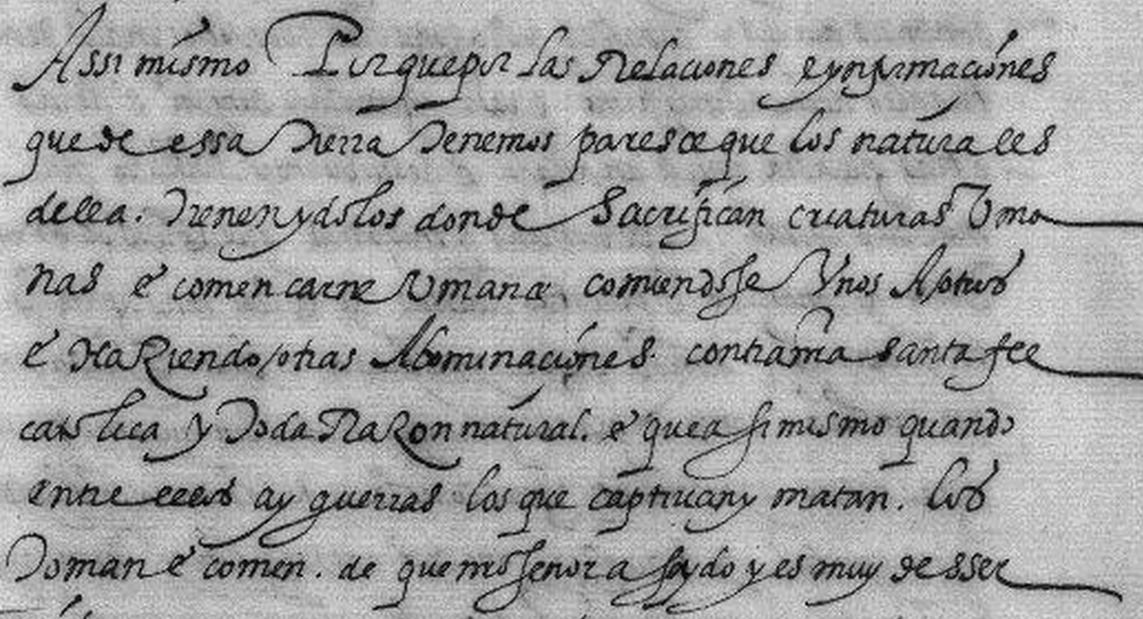 Assi mismo Porque por las Relaciones e ynformaciones
que de essa tierra tenemos paresce que los naturales
della. tienen ydolos donde Sacrifican criaturas Uma
nas e comen carne Umana comiendosse Unos A otros
e Haziendo otras Abominaciones. contra nra santa fee
catolica y toda Razon natural. e que asi mismo quando
entre ellos ay guerras los que captivan y matan. los
toman e comen. de que nro señor a sydo y es muy desser